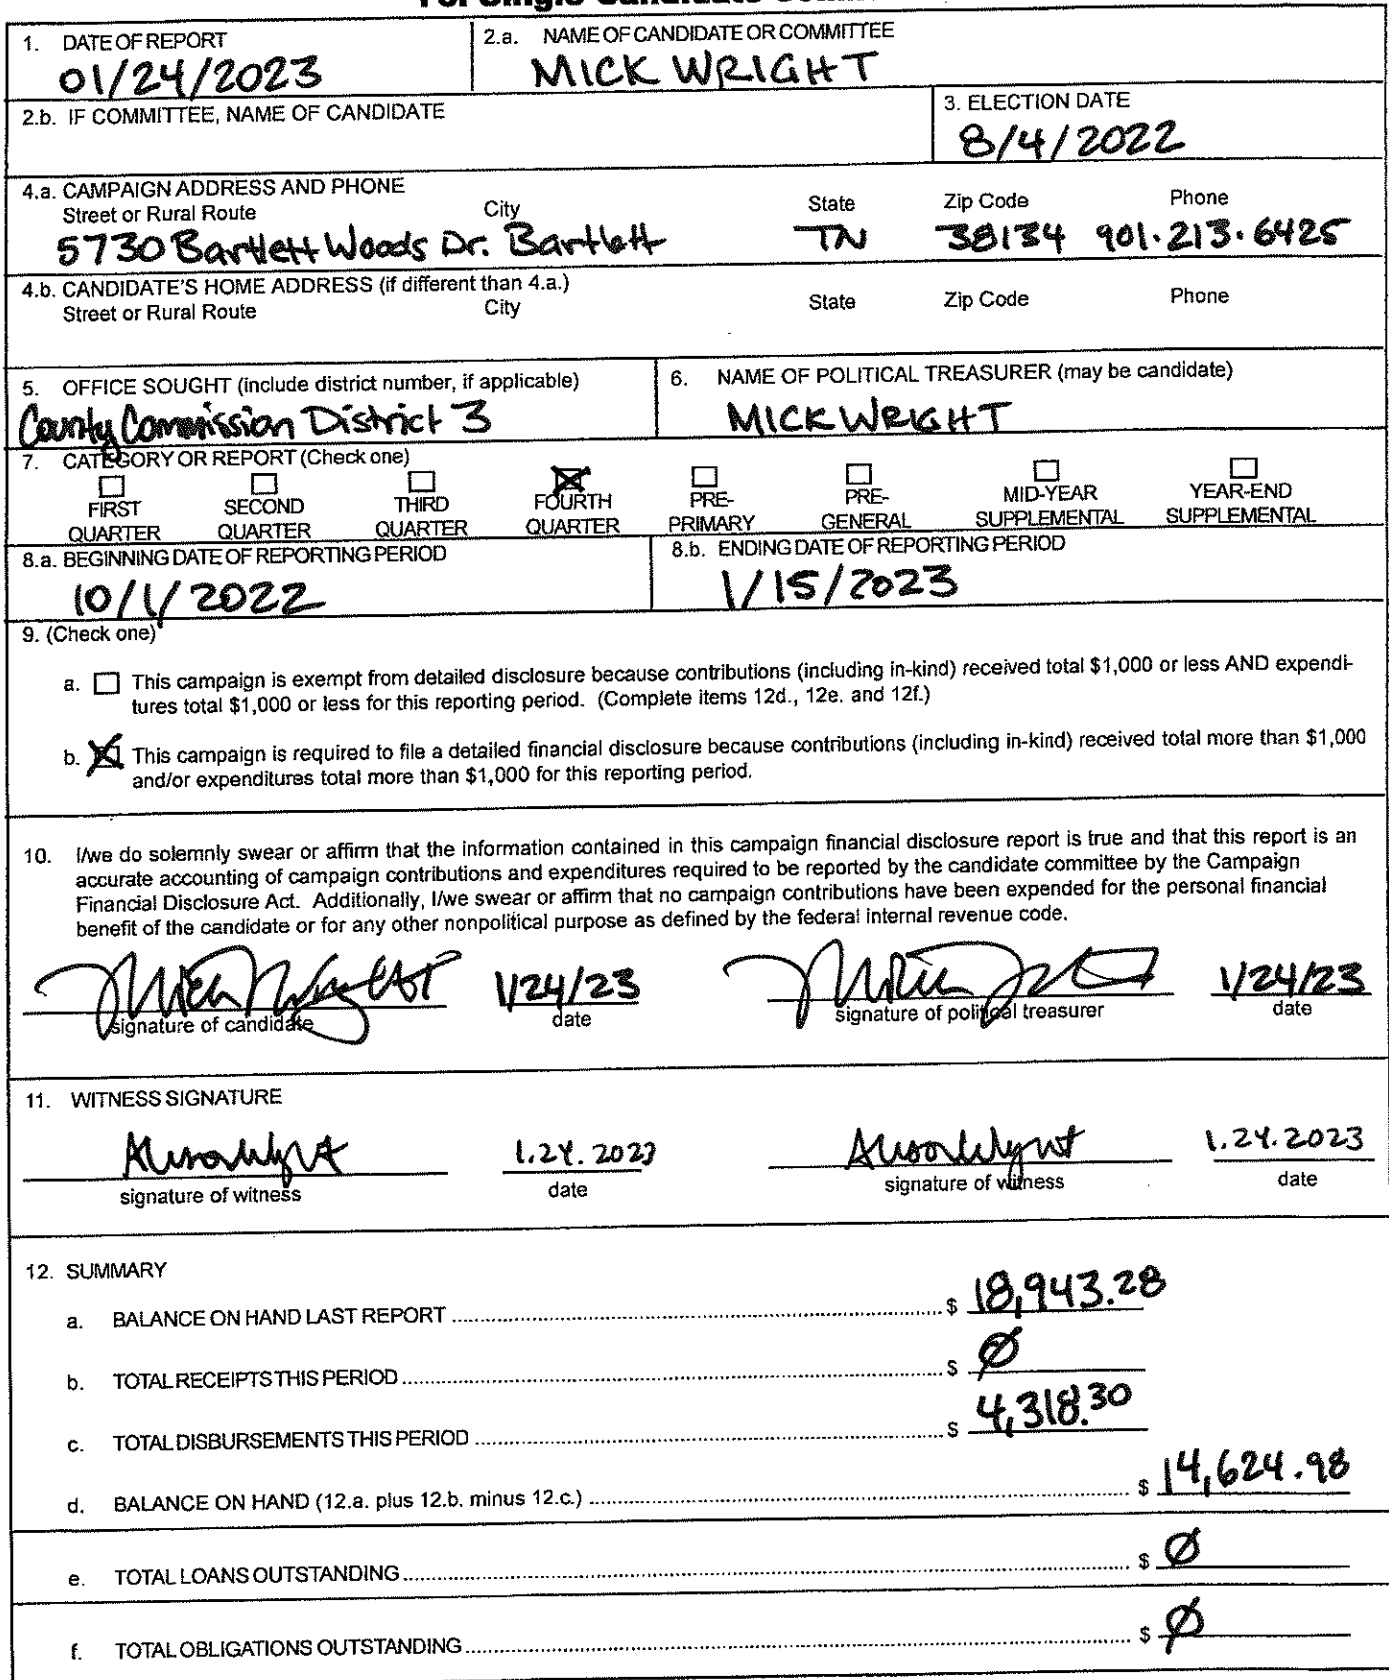 1. DATE OF REPORT
01/24/2023
2.a. NAME OF CANDIDATE OR COMMITTEE
MICK WRIGHT
2.b. IF COMMITTEE, NAME OF CANDIDATE
3. ELECTION DATE
8/4/2022
4.a. CAMPAIGN ADDRESS AND PHONE
Street or Rural Route City State Zip Code Phone
5730 Bartlett Woods Dr. Bartlett TN 38134 901.213.6425
4.b. CANDIDATE'S HOME ADDRESS (if different than 4.a.)
Street or Rural Route City State Zip Code Phone
5. OFFICE SOUGHT (include district number, if applicable)
County Commission District 3
6. NAME OF POLITICAL TREASURER (may be candidate)
MICK WRIGHT
7. CATEGORY OR REPORT (Check one)
FIRST QUARTER
SECOND QUARTER
THIRD QUARTER
FOURTH QUARTER
PRE-PRIMARY
PRE-GENERAL
MID-YEAR SUPPLEMENTAL
YEAR-END SUPPLEMENTAL
8.a. BEGINNING DATE OF REPORTING PERIOD
10/1/2022
8.b. ENDING DATE OF REPORTING PERIOD
1/15/2023
9. (Check one)
a. This campaign is exempt from detailed disclosure because contributions (including in-kind) received total $1,000 or less AND expendi-
tures total $1,000 or less for this reporting period. (Complete items 12d., 12e. and 12f.)
b. This campaign is required to file a detailed financial disclosure because contributions (including in-kind) received total more than $1,000
and/or expenditures total more than $1,000 for this reporting period.
10. I/we do solemnly swear or affirm that the information contained in this campaign financial disclosure report is true and that this report is an
accurate accounting of campaign contributions and expenditures required to be reported by the candidate committee by the Campaign
Financial Disclosure Act. Additionally, I/we swear or affirm that no campaign contributions have been expended for the personal financial
benefit of the candidate or for any other nonpolitical purpose as defined by the federal internal revenue code.
1/24/23 1/24/23
signature of candidate date signature of political treasurer date
11. WITNESS SIGNATURE
1.24.2023 1.24.2023
signature of witness date signature of witness date
12. SUMMARY
a. BALANCE ON HAND LAST REPORT $ 18,943.28
b. TOTAL RECEIPTS THIS PERIOD $ Ø
c. TOTAL DISBURSEMENTS THIS PERIOD $ 4,318.30
d. BALANCE ON HAND (12.a. plus 12.b. minus 12.c.) $ 14,624.98
e. TOTAL LOANS OUTSTANDING $ Ø
f. TOTAL OBLIGATIONS OUTSTANDING $ Ø